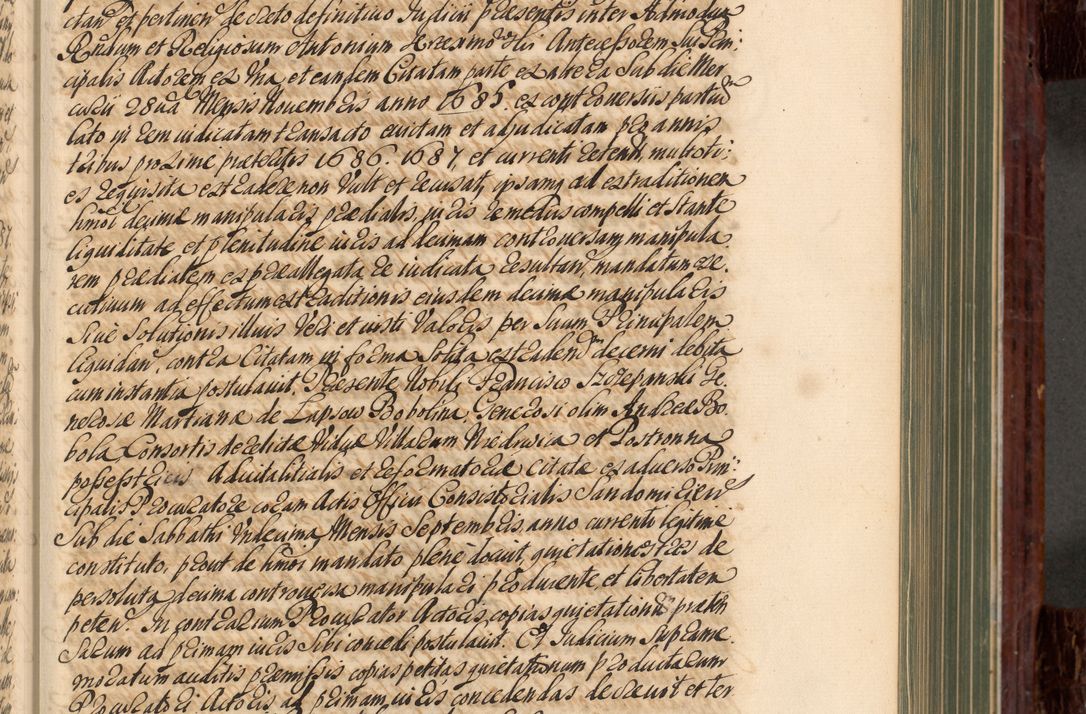 ctan et pertinen decreto definitivo Judicii praesentis inter Admodum
Rndum et Religiosum Antonium Antecessorem sui Prin:
cipalis Actorem ex una, et eandem Citatam parte ex altera Sub die Mer
curii 28va Mensis Novembris anno 1685. ex controversiis partium
lato in rem iudicatam transacto evictam et adjudicatam pro annis
tribus proxime praeteritis 1686. 1687. et currenti retent, multoti:
es requisita extradere non vult et recusat, ipsamq ad extraditionem
hmoi decimae manipularis praedialis, iuris remediis compelli et stante
liquiditate et plenitudine iuris ad decimam controversam manipula
rem praedialem ex praeallegata re iudicata resultan, mandatum exe:
cutivum ad effectum extraditionis eiusdem decimae manipularis
Sive Solutionis illius veri et iusti valoris per Suum Principalem
liquidan, contra Citatam in forma Solita extraden decerni debita
cum instantia postulavit. Praesente Nobili Francisco Szczepanski Ge:
nerosae Martianae de Lapsow Bobolina, Generosi olim Andreae Bo:
bola Consortis derelictae Viduae Villarum Niedrwica et Postronna
possess Advitalitialis et reformatoriae citatae ex adverso Prin:
cipalis Procuratore coram Actis Officii Consistorialis Sandomirien
Sub die Sabbathi Undecima Mensis Septembris anno currenti legitime
constituto, prout de hmoi mandato plene docuit, quietationes tres de
persoluta decima controversa manipulari producente et libertatem
peten. In contrarium Procurator Actoris copias quietationum
ad primam iuris Sibi concedi postulavit. Et Judicium Suprame
moratum auditis praemissis copias petitas quietationum productarum
Procuratori Actoris ad primam iuris concedendas decrevit et ter